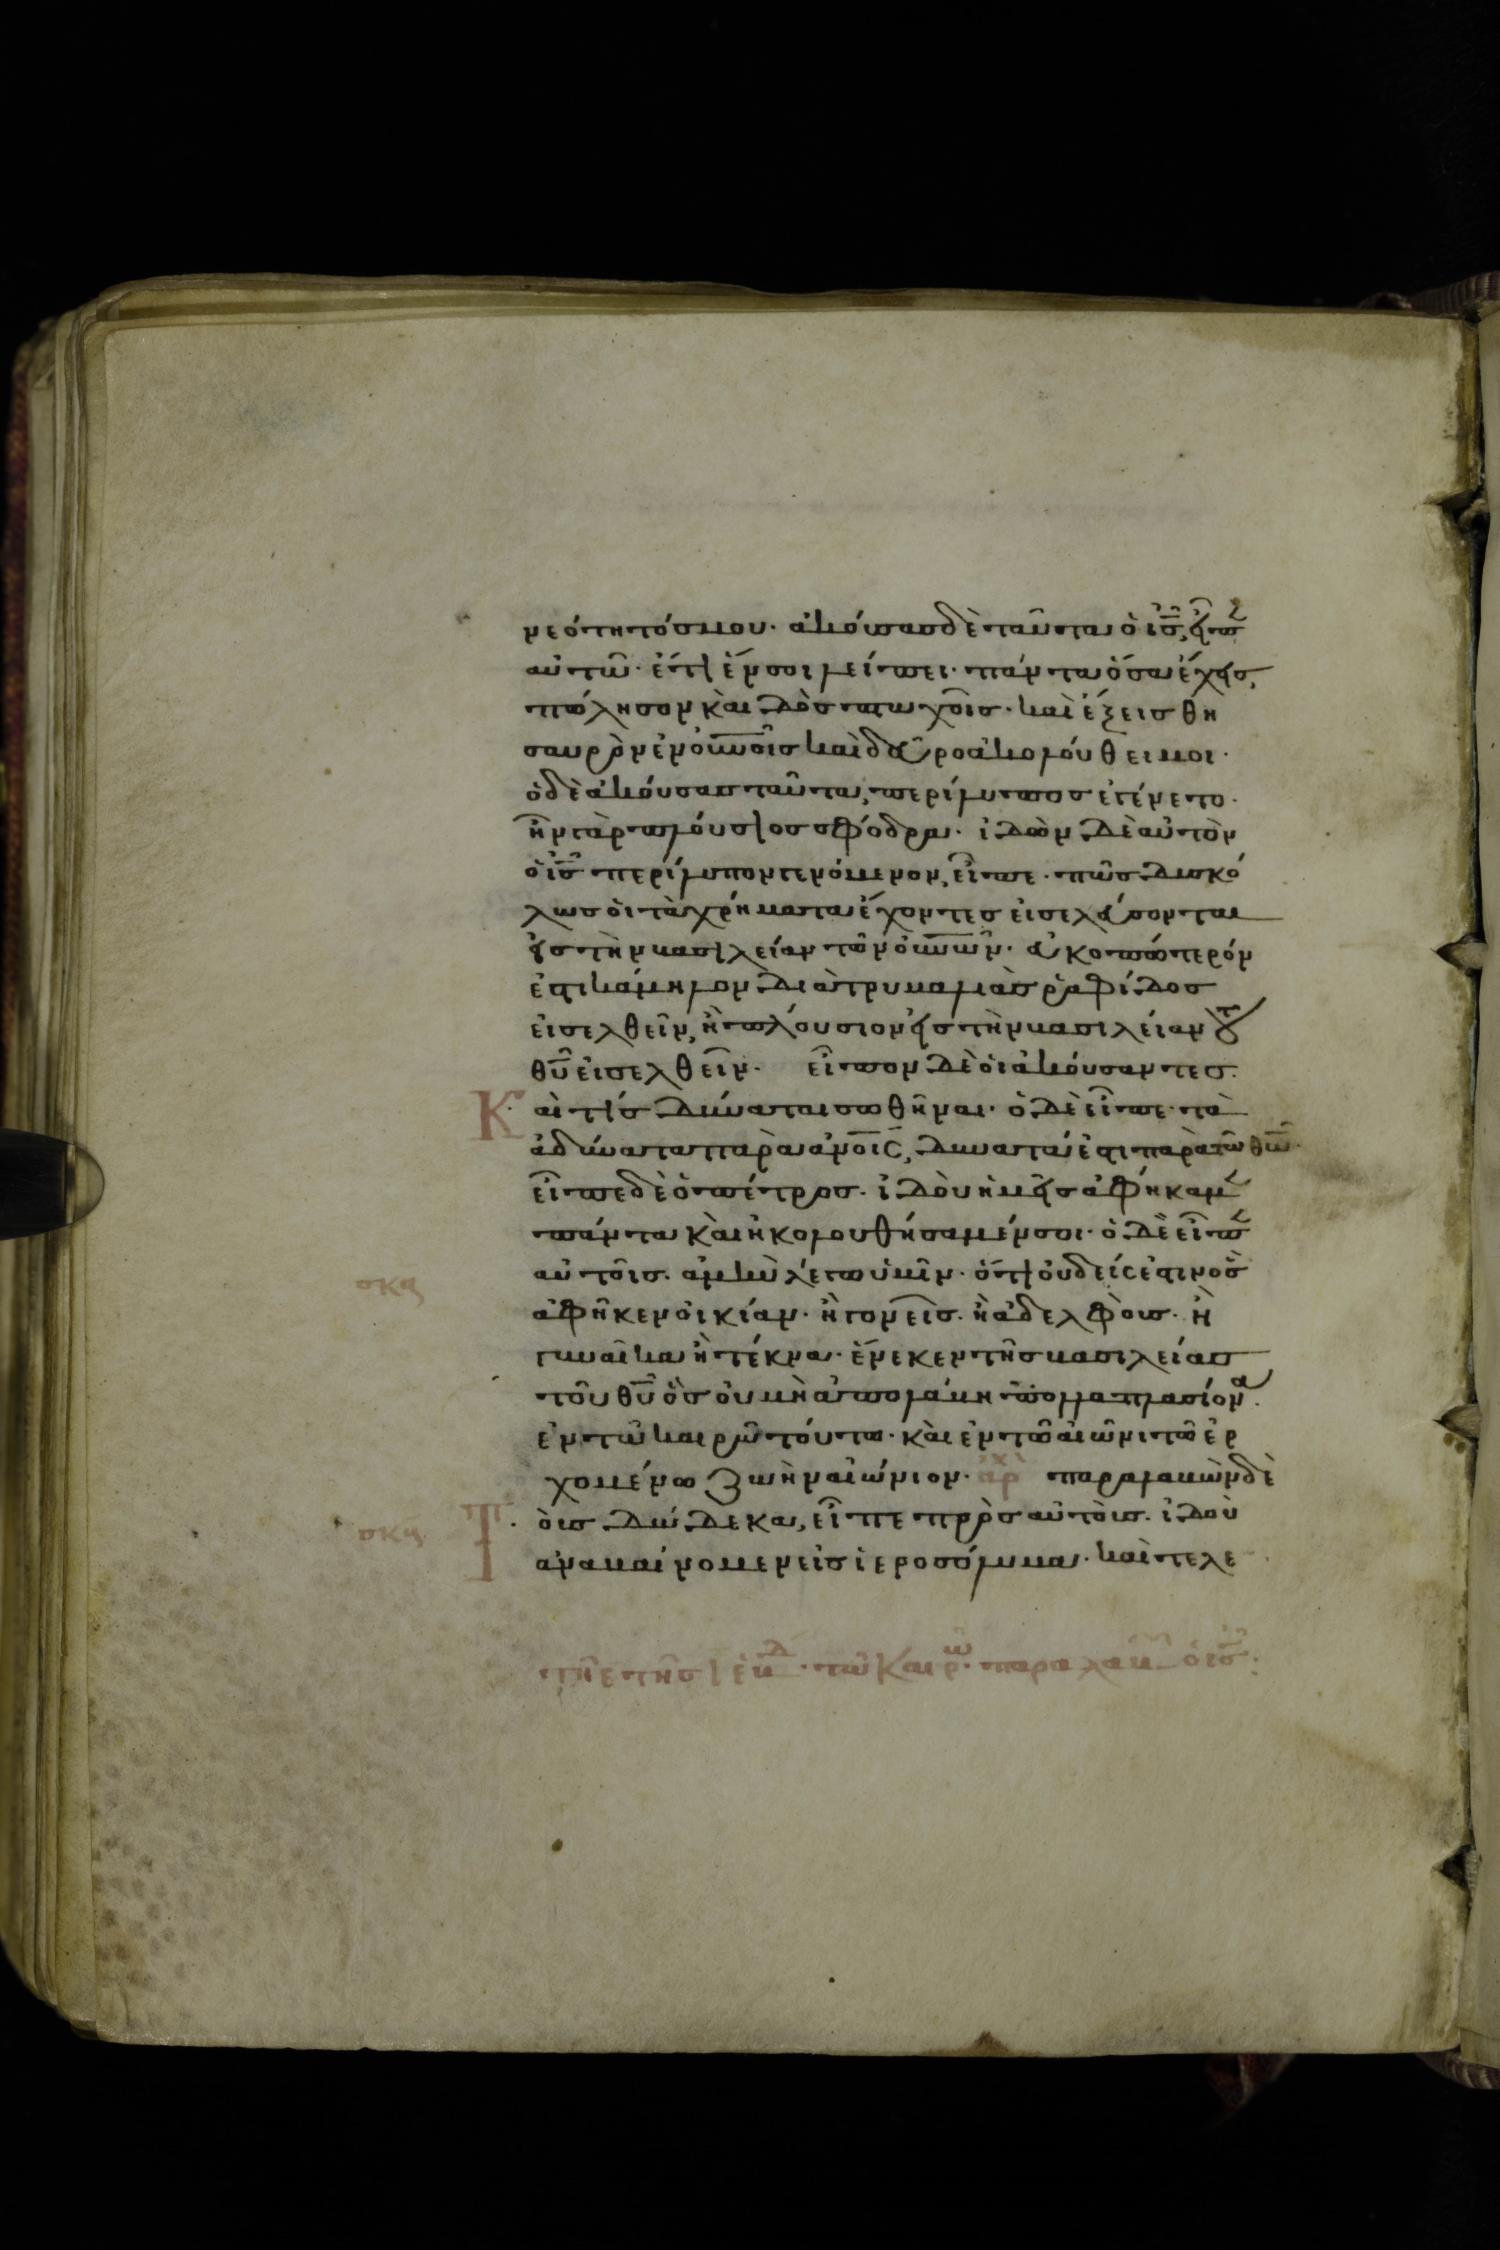 νεότητός μου· ἀκούσας δὲ ταῦτα ὁ ις, εἶπεν
αὐτῶ· ἔτι ἕν σοι λείπει· πάντα ὅσα ἔχεις,
πώλησον καὶ δὸς πτωχοῖς· καὶ ἕξεις θη
σαυρὸν ἐν οὐνοῖς καὶ δεῦρο ἀκολούθει μοι·
ὁ δὲ ἀκούσας ταῦτα, περίλυπος ἐγένετο·
ἦν γὰρ πλούσιος σφόδρα· ἰδὼν δὲ αὐτὸν
ὁ ις περίλυπον γενόμενον, εἶπε· πῶς δυσκό
λως οἱ τὰ χρήματα ἔχοντες εἰσελεύσονται
εἰς τὴν βασιλείαν τῶν οὐνῶν· εὐκοπώτερόν
ἐστι κάμηλον διὰ τρυμαλιᾶς ῥαφίδος
εἰσελθεῖν, ἢ πλούσιον εἰς τὴν βασιλείαν τοῦ
θυ εἰσελθεῖν· εἶπον δὲ οἱ ἀκούσαντες·
Καὶ τίς δύναται σωθῆναι· ὁ δὲ εἶπε· τὰ
ἀδύνατα παρὰ ἀνοις, δυνατά ἐστι παρὰ τῶ θω·
εἶπε δὲ ὁ πέτρος· ἰδοὺ ἡμεῖς ἀφήκαμεν
πάντα καὶ ἠκολουθήσαμέν σοι· ὁ δὲ εἶπεν
αὐτοῖς· ἀμὴν λέγω ὑμῖν· ὅτι οὐδείς ἐστιν ὃς
ἀφῆκεν οἰκίαν· ἢ γονεῖς· ἢ ἀδελφοὺς· ἢ
γυναῖκα ἢ τέκνα· ἕνεκεν τῆς βασιλείας
τοῦ θυ ὃς οὐ μὴ ἀπολάβη πολλαπλασίονα·
ἐν τῶ καιρῶ τούτω· καὶ ἐν τῶ αἰῶνι τῶ ἐρ
χομένω ζωὴν αἰώνιον· ἀρχ παραλαβὼν δὲ
Τοὺς δώδεκα, εἶπε πρὸς αὐτοὺς· ἰδοὺ
ἀναβαίνομεν εἰς ἱεροσόλυμα· καὶ τελε